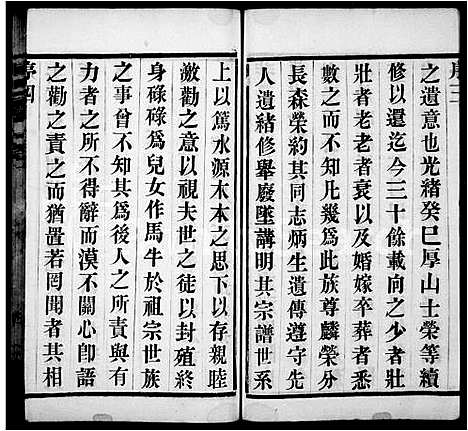 序三
之遺意也光緒癸巳厚山士榮等續
修以還迄今三十餘載向之少者壯
壯者老老者衰以及婚嫁卒葬者悉
數之而不知凡幾爲此族尊麟榮分
長森榮約其同志炳生遺傳遵守先
人遺緒修舉廢墜講明其宗譜世系
上以篤水源木本之思下以存親睦
激勸之意以視夫世之徒以封殖終
身碌碌爲兒女作馬牛於祖宗世族
之事曾不知其爲後人之所責與有
力者之所不得辭而漠不關心卽語
之勸之責之而猶置若罔聞者其相
序四